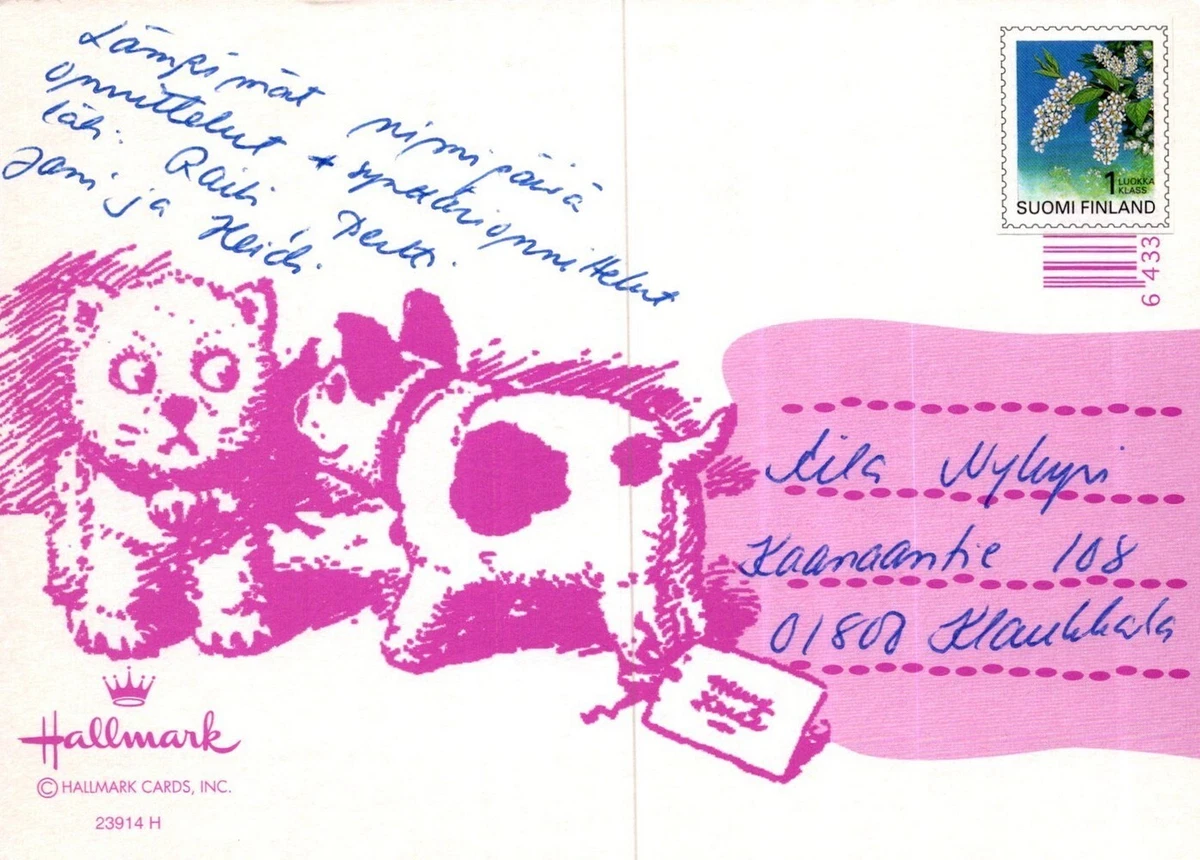 Lämpimät nimipäivä
onnittelut + synttärionnittelut
täti. Raili, Pertti.
Jani ja Heidi.
1 LUOKKA
KLASS
SUOMI FINLAND
6 433
Aila Nykyri
Kaanaantie 108
01800 Klaukkala
Hallmark
© HALLMARK CARDS, INC.
23914 H